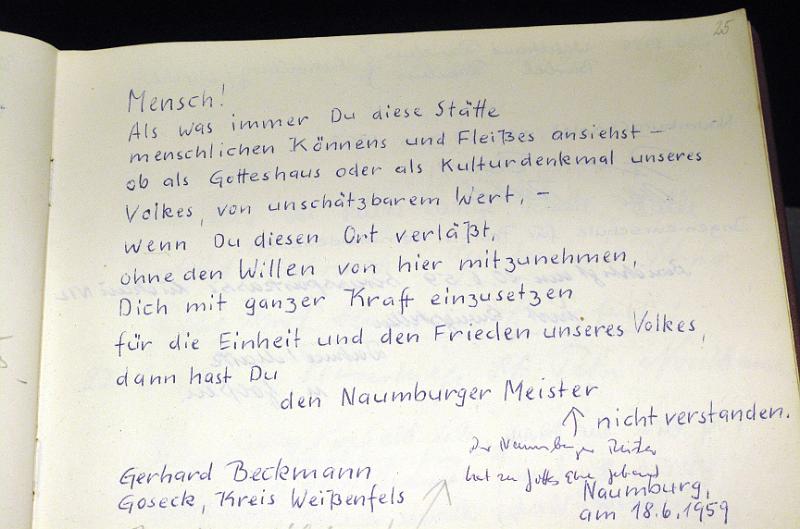 25
Mensch!
Als was immer Du diese Stätte
menschlichen Könnens und Fleißes ansiehst –
ob als Gotteshaus oder als Kulturdenkmal unseres
Volkes, von unschätzbarem Wert, –
wenn Du diesen Ort verläßt,
ohne den Willen von hier mitzunehmen,
Dich mit ganzer Kraft einzusetzen
für die Einheit und den Frieden unseres Volkes,
dann hast Du
den Naumburger Meister
↑ nicht verstanden.
Der Naumburger Meister
hat zu Gottes Ehre gebaut
Gerhard Beckmann
Goseck, Kreis Weißenfels
Naumburg,
am 18.6.1959